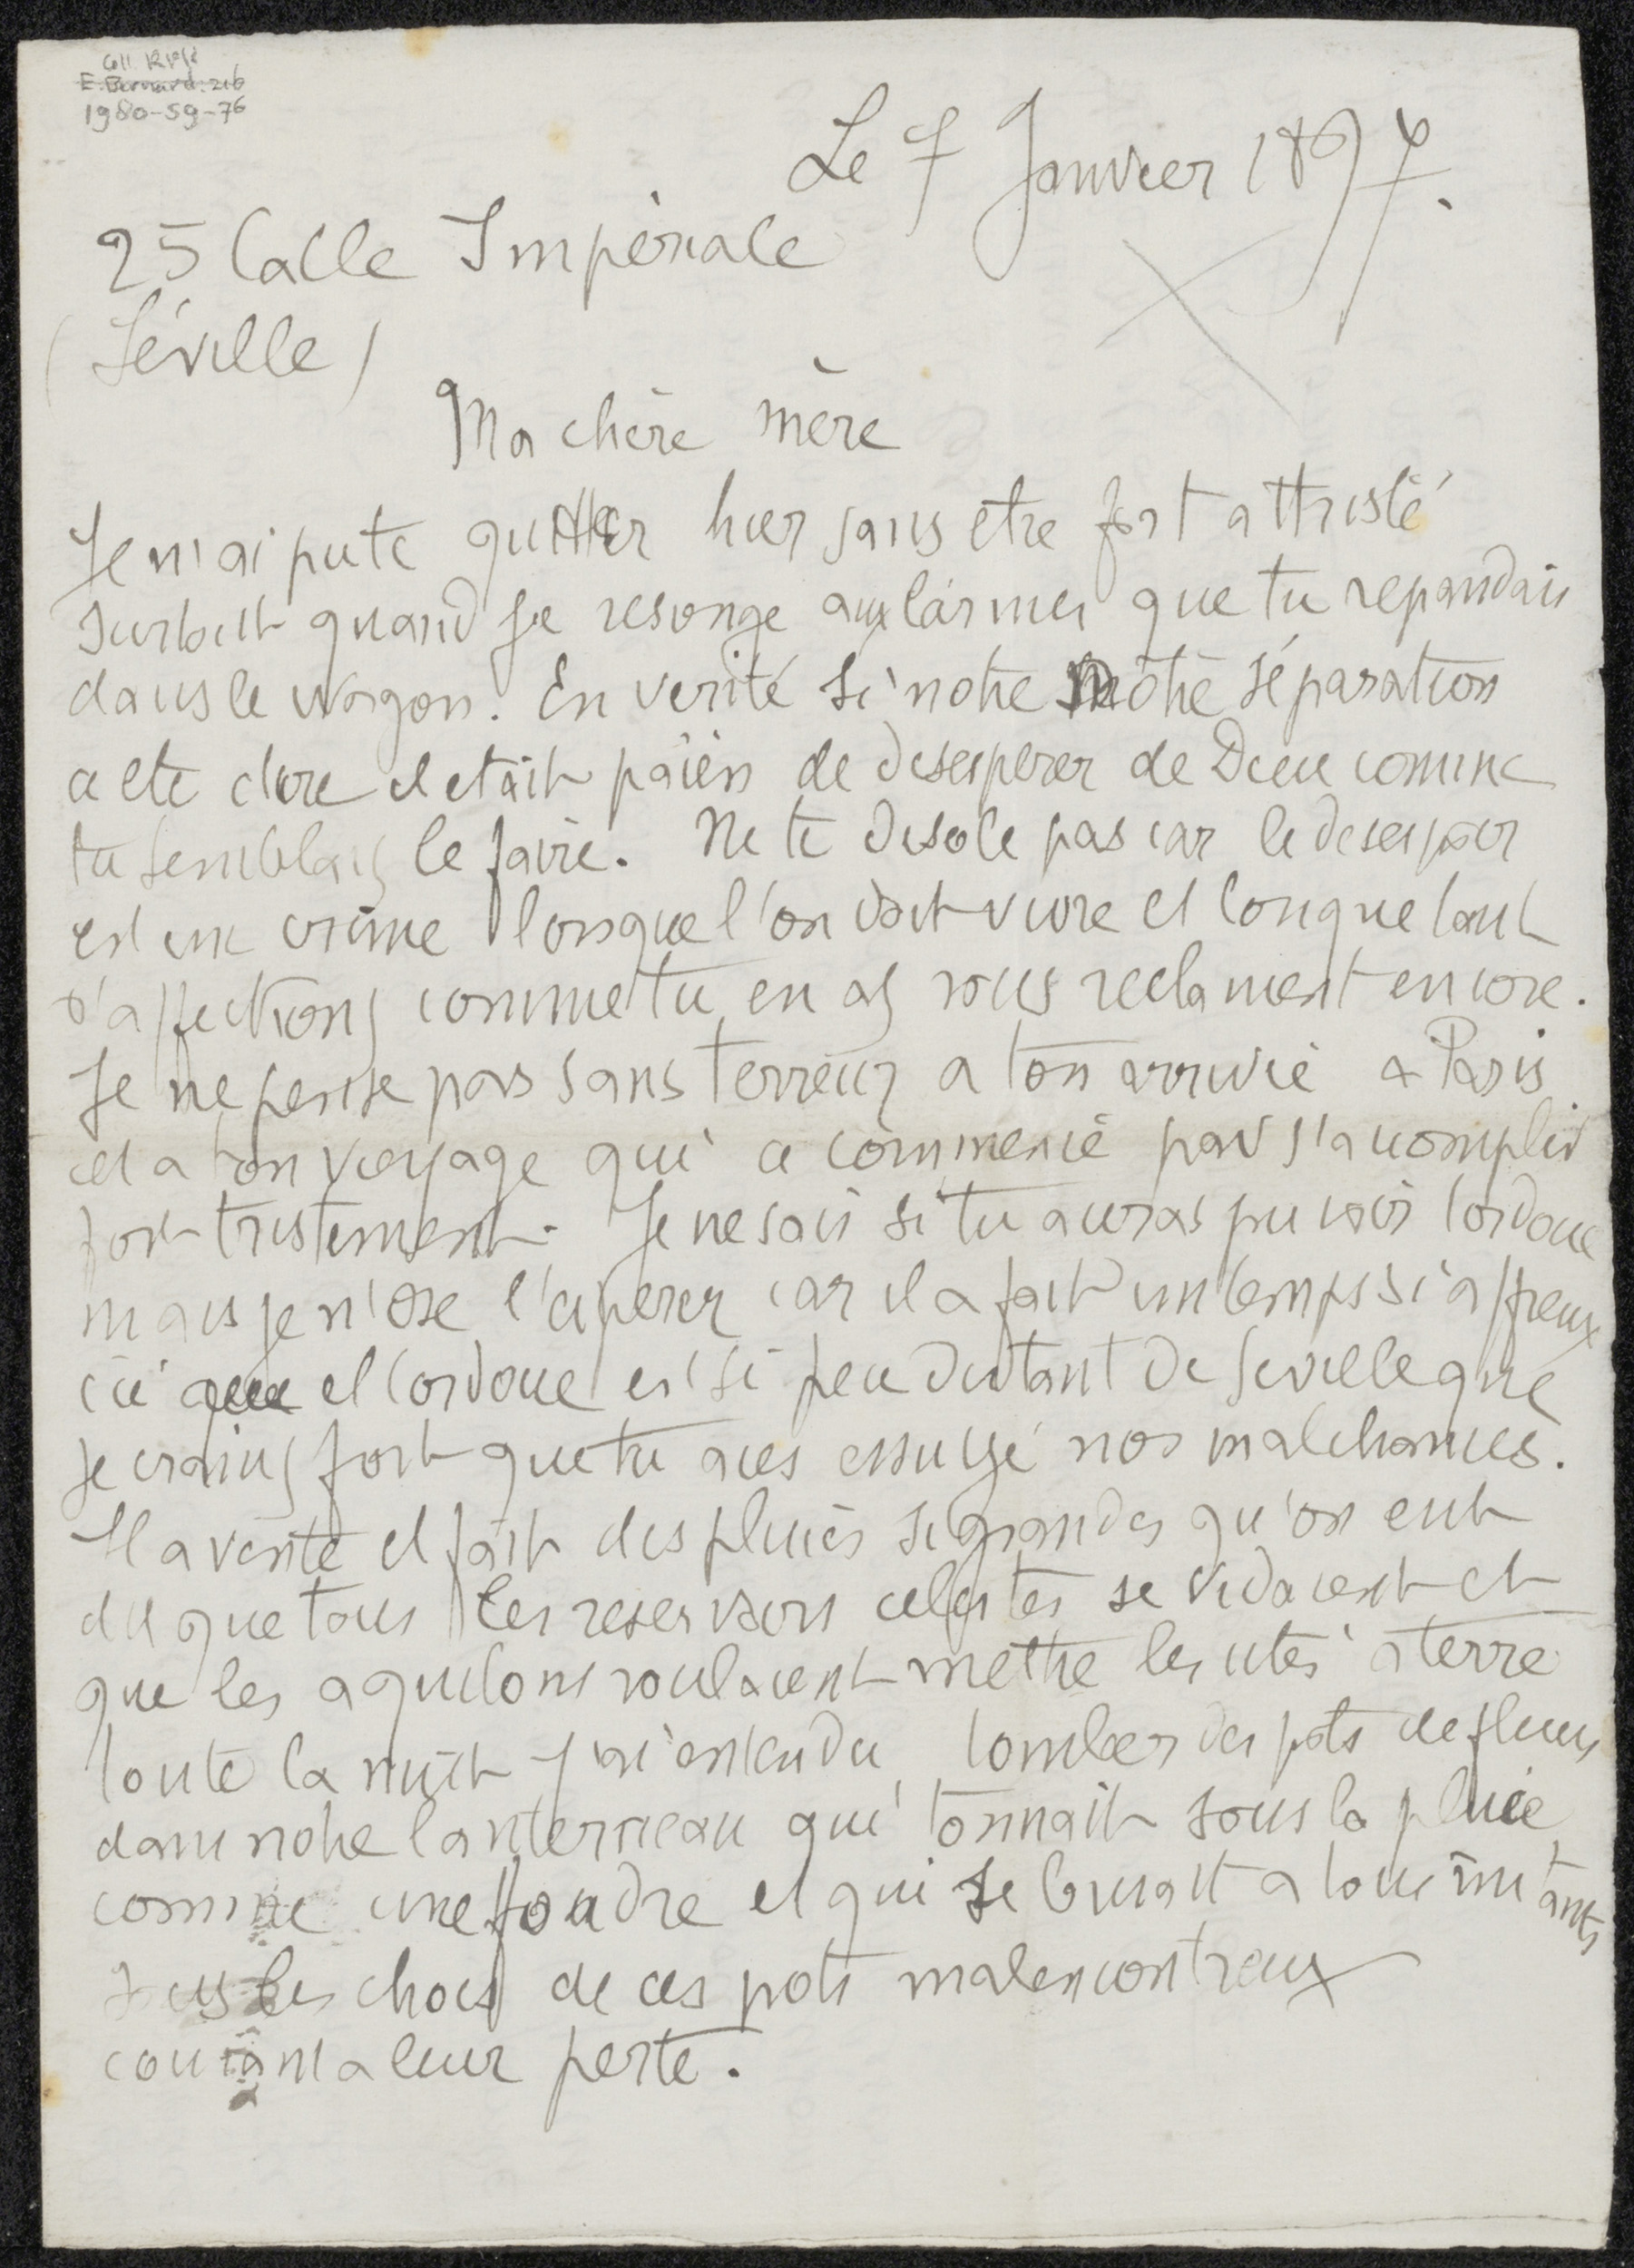 Coll. RPK
E. Bernard. 216
1980-59-76
Le 7 Janvier 1897.
25 Calle Impériale
(Séville)
Ma chère mère
Je n'ai pu te quitter hier sans etre fort attristé
surtout quand je resonge aux larmes que tu repandais
dans le wagon. En verité si notre notre séparation
a ete dure il etait païen de desesperer de Dieu comme
tu semblais le faire. Ne te desole pas car le desespoir
est un crime lorsque l'on doit vivre et lorsque tant
d'affections comme tu en as vous reclament encore.
Je ne pense pas sans terreur a ton arrivée a Paris
et a ton voyage qui a commencé par s'acomplir
fort tristement. Je ne sais si tu auras pu voir Cordoue
mais je n'ose l'esperer car il a fait un temps si affreux
ici que et Cordoue est si peu distant de Seville que
je crains fort que tu aies essuyé nos malchances.
Il a venté et fait des pluies si grandes qu'on eut
dit que tous les reservoirs celestes se vidaient et
que les aquilons voulaient mettre les cités à terre
toute la nuit j'ai entendu tomber des pots de fleurs
dans notre lanterneau qui tonnait sous la pluie
comme une foudre et qui se brisait a tous instants
sous les chocs de ces pots malencontreux
courant a leur perte.